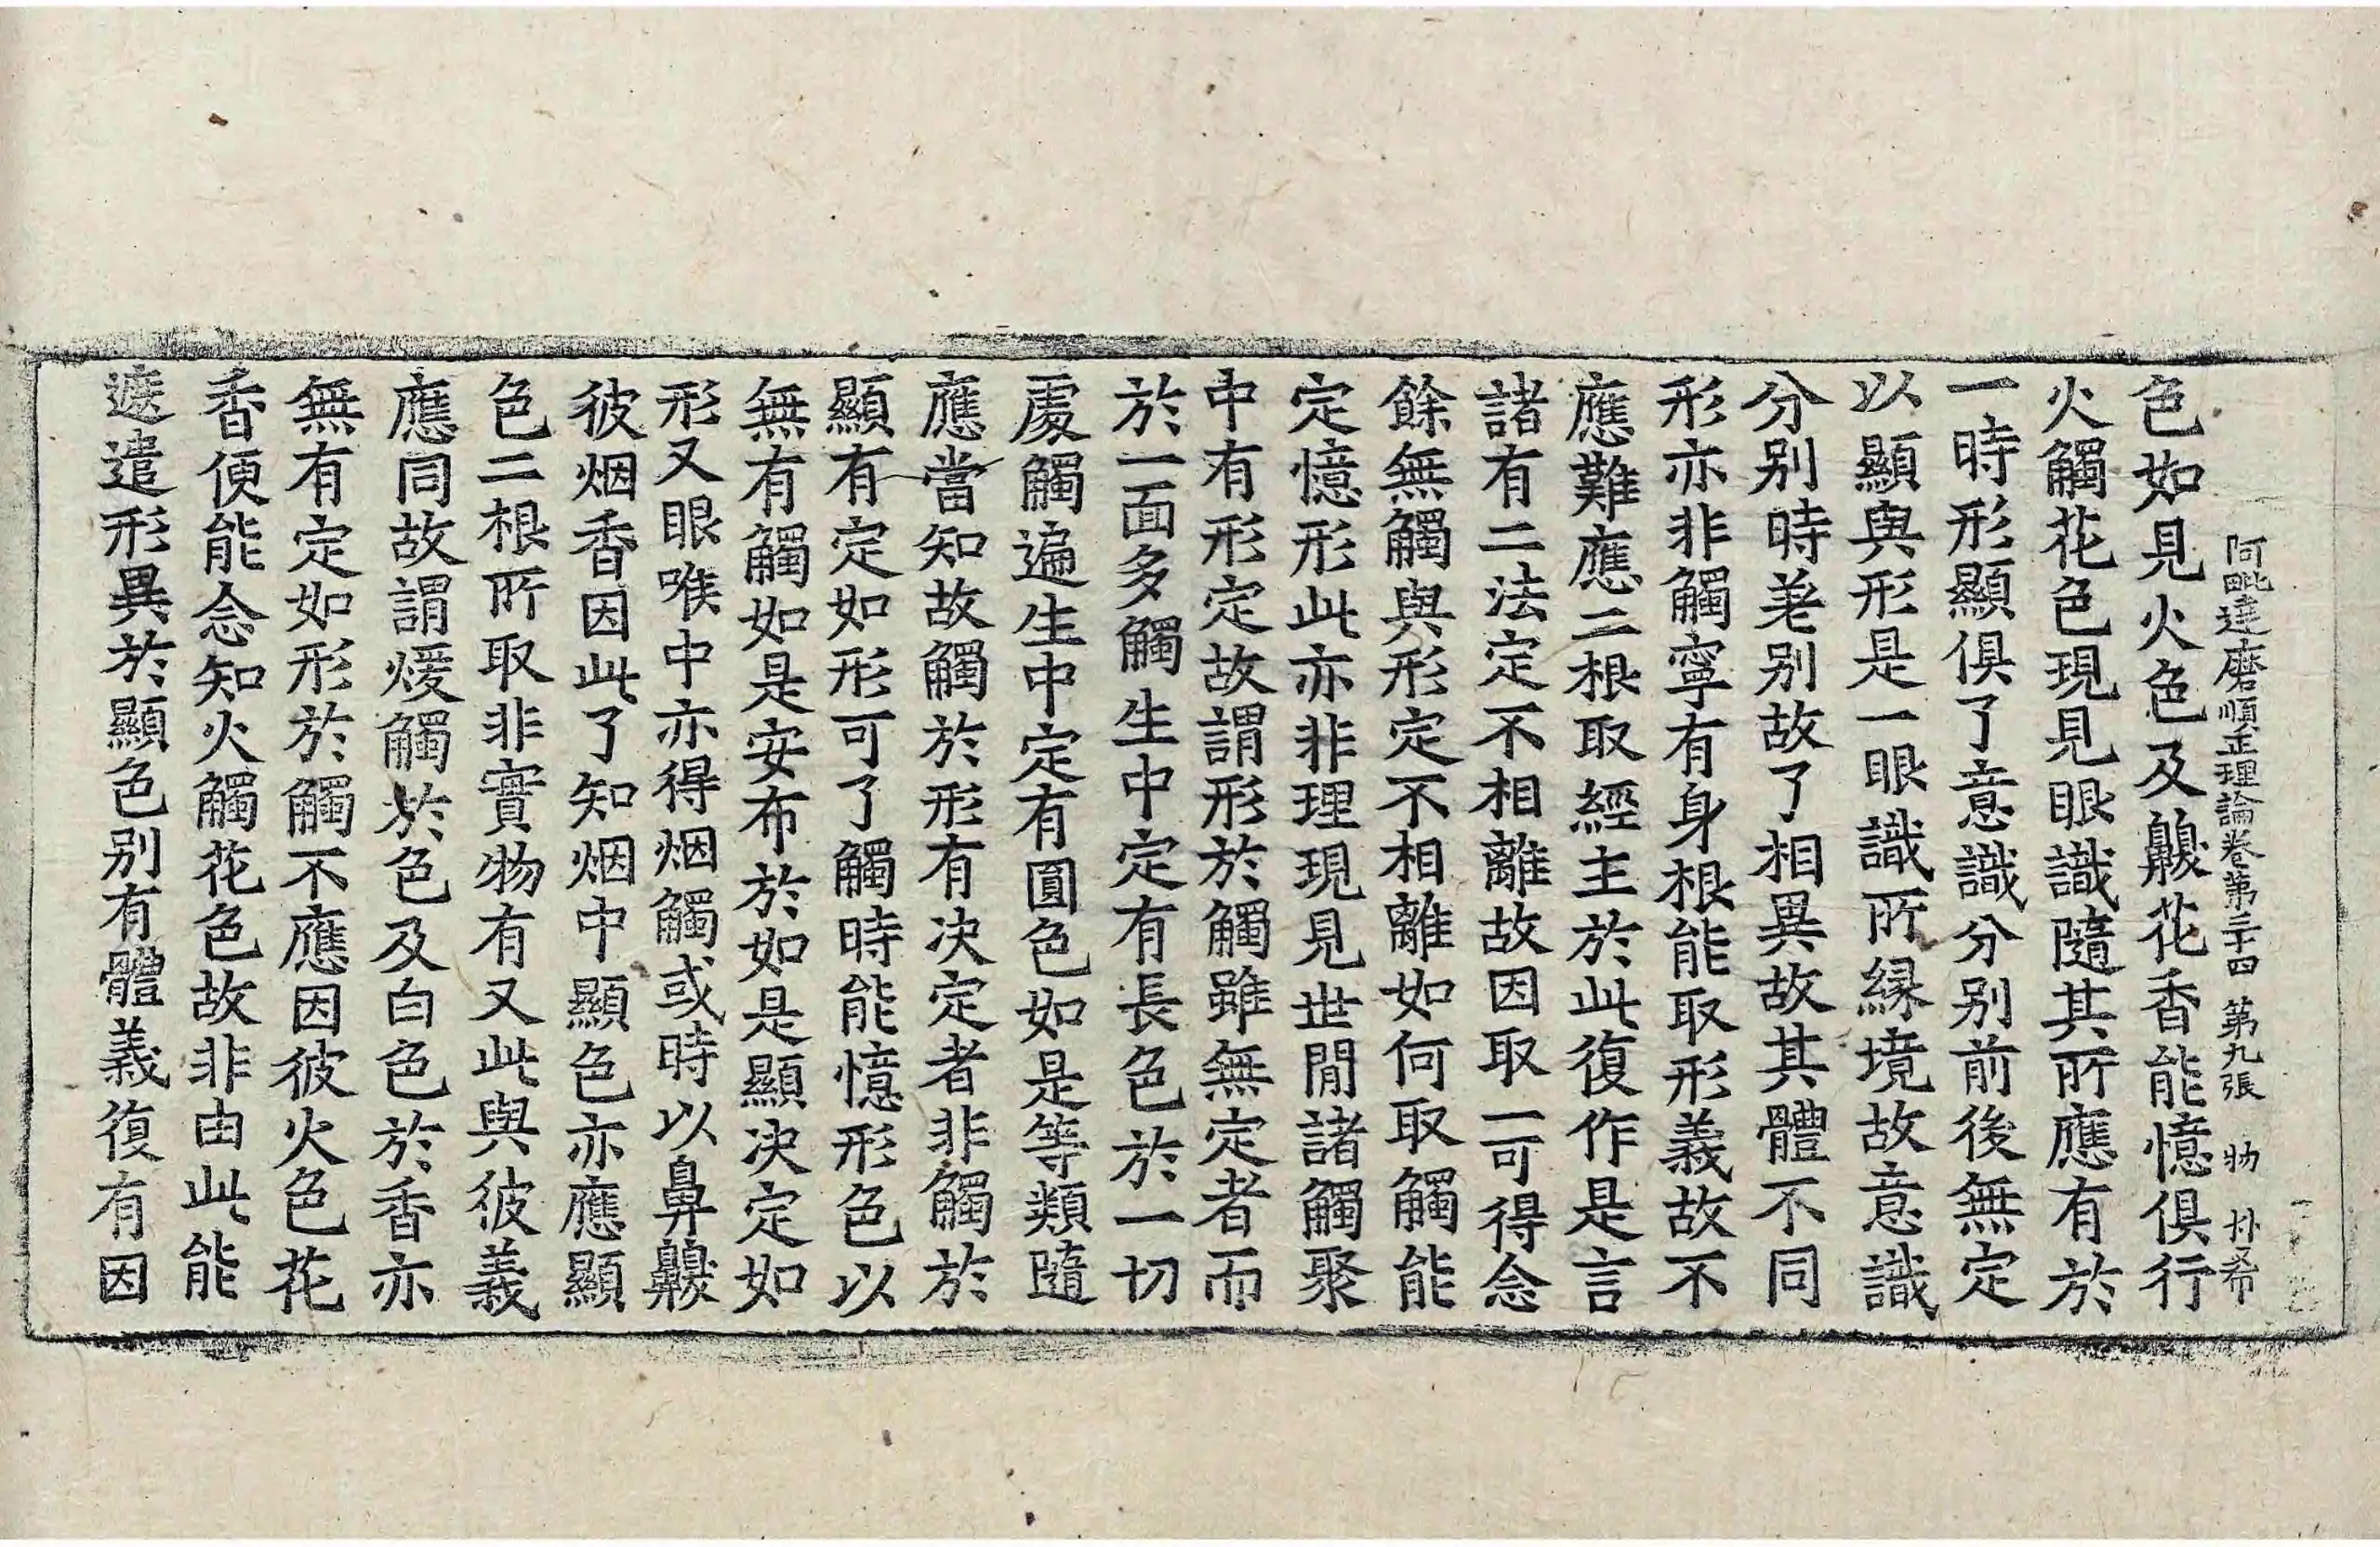 阿毗達磨順正理論卷第三十四 第九張 物 朴希
色如見火色及齅花香能憶俱行
火觸花色現見眼識隨其所應有於
一時形顯俱了意識分别前後無定
以顯與形是一眼識所縁境故意識
分别時差别故了相異故其體不同
形亦非觸寧有身根能取形義故不
應難應二根取經主於此復作是言
諸有二法定不相離故因取一可得念
餘無觸與形定不相離如何取觸能
定憶形此亦非理現見世間諸觸聚
中有形定故謂形於觸雖無定者而
於一面多觸生中定有長色於一切
處觸遍生中定有圓色如是等類隨
應當知故觸於形有决定者非觸於
顯有定如形可了觸時能憶形色以
無有觸如是安布於如是顯决定如
形又眼喉中亦得烟觸或時以鼻齅
彼烟香因此了知烟中顯色亦應顯
色二根所取非實物有又此與彼義
應同故謂煖觸於色及白色於香亦
無有定如形於觸不應因彼火色花
香便能念知火觸花色故非由此能
遮遣形異於顯色别有體義復有因